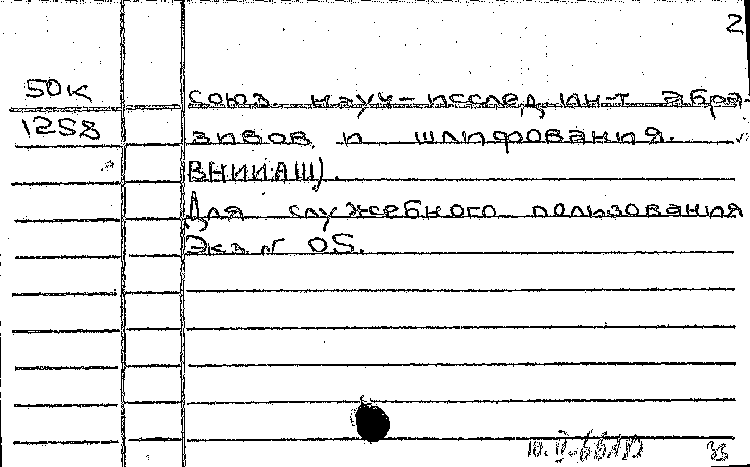 2
50к союз. науч-исслед. ин-т абра-
1258 зивов и шлифования.
ВНИИАШ).
Для служебного пользования
Экз. № 05.
33